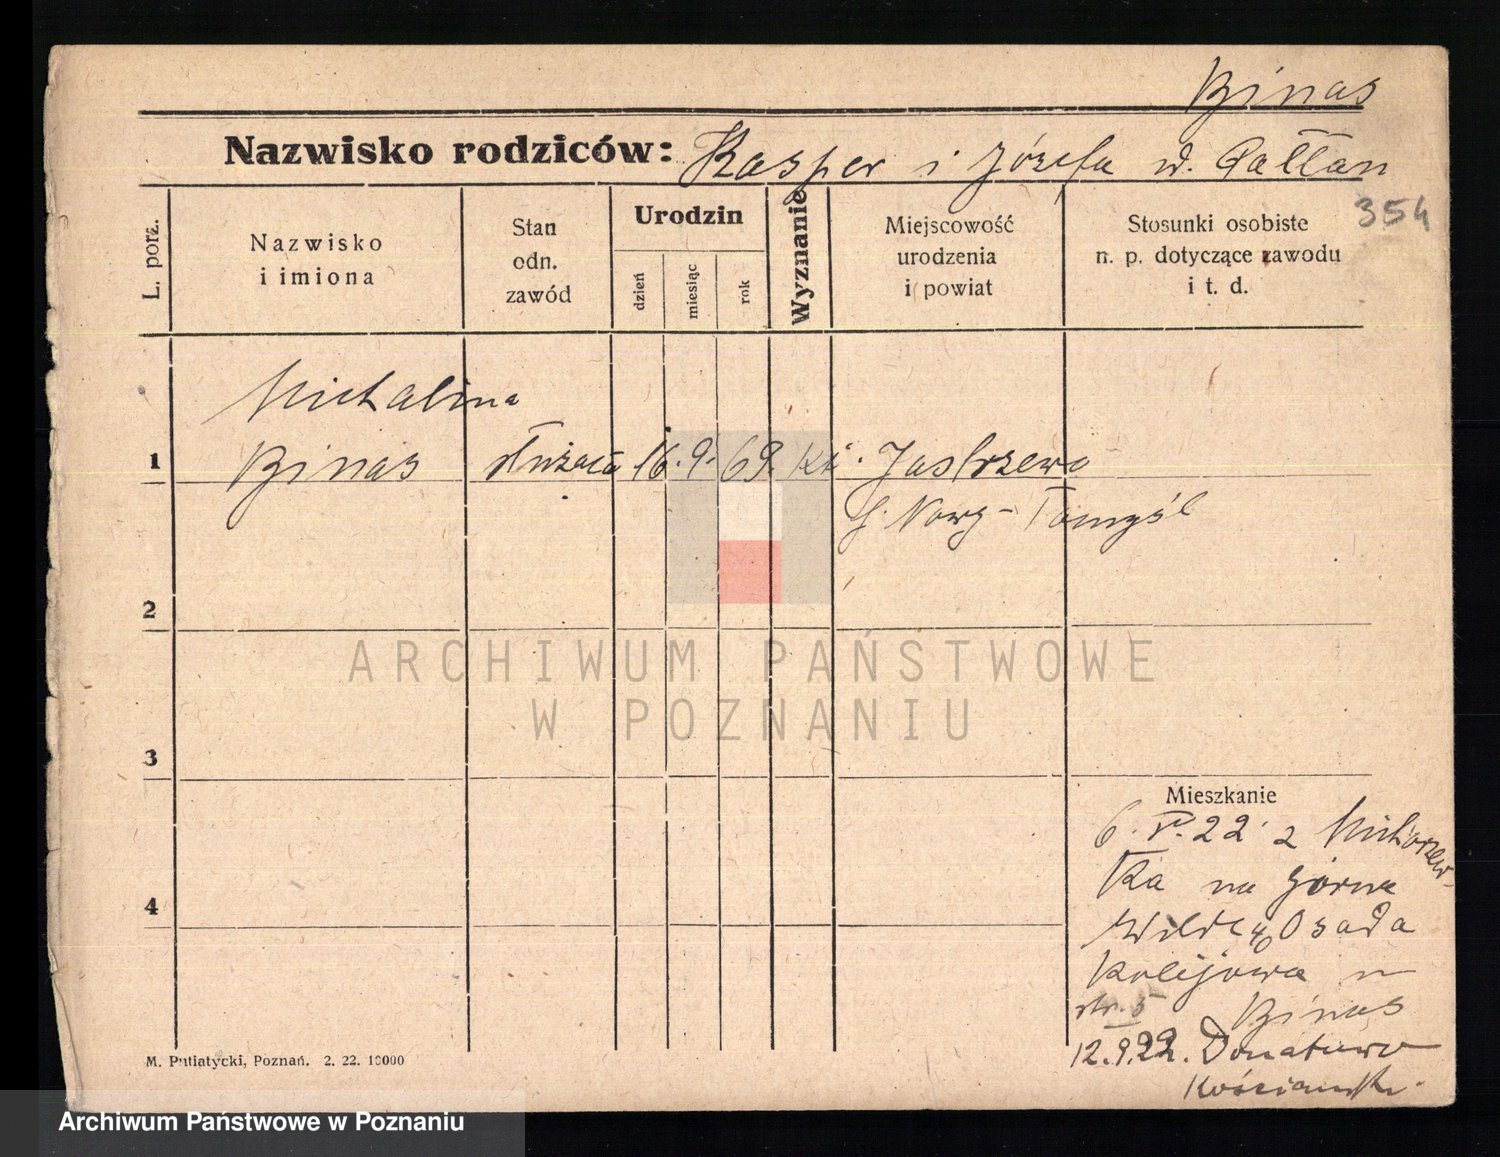 Binas
Nazwisko rodziców: Kasper i Józefa d. Gattan
354
L. porz.
Nazwisko
i imiona
Stan
odn.
zawód
Urodzin
dzień
miesiąc
rok
Wyznanie
Miejscowość
urodzenia
i powiat
Stosunki osobiste
n. p. dotyczące zawodu
i t. d.
Michalina
1 Binas służąca 16. 9. 69 kt. Jastrzewo
p. Nowy-Tomyśl
2
3
4
Mieszkanie
6. V. 22 z Michorzew-
ka na górna
Wildę 40 Osada
Kolejowa
str. 5 Binas
12.9.22. Donatowo
Kościański.
M. Putiatycki, Poznań. 2. 22. 10000
ARCHIWUM PAŃSTWOWE
W POZNANIU
Archiwum Państwowe w Poznaniu